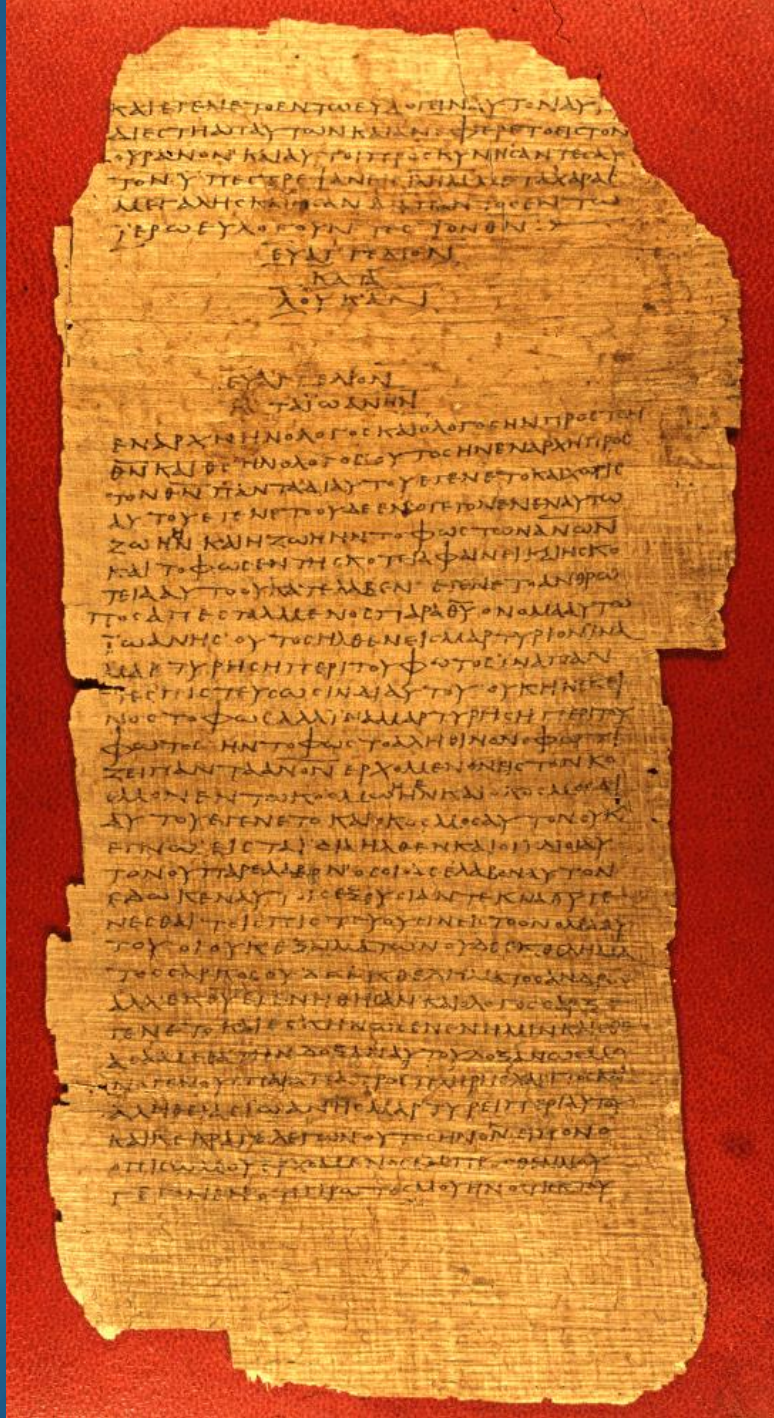 ΚΑΙΕΓΕΝΕΤΟΕΝΤΩΕΥΛΟΓΕΙΝΑΥΤΟΝΑΥ
ΔΙΕϹΤΗΑΠΑΥΤΩΝΚΑΙΑΝΕΦΕΡΕΤΟΕΙϹΤΟΝ
ΟΥΡΑΝΟΝ ΚΑΙΑΥΤΟΙΠΡΟϹΚΥΝΗϹΑΝΤΕϹΑΥ
ΤΟΝΥΠΕϹΤΡΕΨΑΝ ΜΕΤΑΧΑΡΑϹ
ΜΕΓΑΛΗϹΚΑΙΗϹΑΝΔΙΑΠΑΝΤΟϹΕΝΤΩ
ΪΕΡΩΕΥΛΟΓΟΥΝΤΕϹΤΟΝΘ̅Ν̅
ΕΥΑΓΓΕΛΙΟΝ
ΚΑΤΑ
ΛΟΥΚΑΝ
ΕΥΑΓΓΕΛΙΟΝ
ΚΑΤΑΙΩΑΝΗΝ
ΕΝΑΡΧΗΗΝΟΛΟΓΟϹΚΑΙΟΛΟΓΟϹΗΝΠΡΟϹΤΟΝ
Θ̅Ν̅ΚΑΙΘ̅Ϲ̅ΗΝΟΛΟΓΟϹΟΥΤΟϹΗΝΕΝΑΡΧΗΠΡΟϹ
ΤΟΝΘ̅Ν̅ΠΑΝΤΑΔΙΑΥΤΟΥΕΓΕΝΕΤΟΚΑΙΧΩΡΙϹ
ΑΥΤΟΥΕΓΕΝΕΤΟΟΥΔΕΕΝ·ΟΓΕΓΟΝΕΝΕΝΑΥΤΩ
ΖΩΗΗΝ ΚΑΙΗΖΩΗΗΝΤΟΦΩϹΤΩΝΑΝ̅Ω̅Ν̅
ΚΑΙΤΟΦΩϹΕΝΤΗϹΚΟΤΕΙΑΦΑΙΝΕΙΚΑΙΗϹΚΟ
ΤΕΙΑΑΥΤΟΟΥΚΑΤΕΛΑΒΕΝ· ΕΓΕΝΕΤΟΑΝΘΡΩ
ΠΟϹΑΠΕϹΤΑΛΜΕΝΟϹΠΑΡΑΘ̅Υ̅ΟΝΟΜΑΑΥΤΩ
ΪΩΑΝΗϹ·ΟΥΤΟϹΗΛΘΕΝΕΙϹΜΑΡΤΥΡΙΟΝΙΝΑ
ΜΑΡΤΥΡΗϹΗΠΕΡΙΤΟΥΦΩΤΟϹΙΝΑΠΑΝ
ΤΕϹΠΙϹΤΕΥϹΩϹΙΝΔΙΑΥΤΟΥ·ΟΥΚΗΝΕΚΕΙ
ΝΟϹΤΟΦΩϹΑΛΛΙΝΑΜΑΡΤΥΡΗϹΗΠΕΡΙΤΟΥ
ΦΩΤΟϹ·ΗΝΤΟΦΩϹΤΟΑΛΗΘΙΝΟΝΟΦΩΤΙ
ΖΕΙΠΑΝΤΑΑΝ̅Ο̅Ν̅ΕΡΧΟΜΕΝΟΝΕΙϹΤΟΝΚΟ
ϹΜΟΝΕΝΤΩΚΟϹΜΩΗΝΚΑΙΟΚΟϹΜΟϹΔΙ
ΑΥΤΟΥΕΓΕΝΕΤΟ ΚΑΙΟΚΟϹΜΟϹΑΥΤΟΝΟΥΚ
ΕΓΝΩ·ΕΙϹΤΑΪΔΙΑΗΛΘΕΝΚΑΙΟΙΪΔΙΟΙΑΥ
ΤΟΝΟΥΠΑΡΕΛΑΒΟΝ·ΟϹΟΙΔΕΕΛΑΒΟΝΑΥΤΟΝ
ΕΔΩΚΕΝΑΥΤΟΙϹΕΞΟΥϹΙΑΝΤΕΚΝΑΘ̅Υ̅ΓΕ
ΝΕϹΘΑΙ ΤΟΙϹΠΙϹΤΕΥΟΥϹΙΝΕΙϹΤΟΟΝΟΜΑΑΥ
ΤΟΥ ΟΙΟΥΚΕΞΑΙΜΑΤΩΝΟΥΔΕΕΚΘΕΛΗΜΑ
ΤΟϹϹΑΡΚΟϹΟΥΔΕΕΚΘΕΛΗΜΑΤΟϹΑΝΔΡΟϹ
ΑΛΛΕΚΘ̅Υ̅ΕΓΕΝΗΘΗϹΑΝ ΚΑΙΟΛΟΓΟϹϹΑΡΞΕ
ΓΕΝΕΤΟΚΑΙΕϹΚΗΝΩϹΕΝΕΝΗΜΙΝΚΑΙΕΘΕ
ΑϹΑΜΕΘΑΤΗΝΔΟΞΑΝΑΥΤΟΥΔΟΞΑΝΩϹΜΟ
ΝΟΓΕΝΟΥϹΠΑΡΑΠΑΤΡΟϹΠΛΗΡΗϹΧΑΡΙΤΟϹΚΑΙ
ΑΛΗΘΕΙΑϹΪΩΑΝΗϹΜΑΡΤΥΡΕΙΠΕΡΙΑΥΤΟΥ
ΚΑΙΚΕΚΡΑΓΕΛΕΓΩΝΟΥΤΟϹΗΝΟΝΕΙΠΟΝΟ
ΟΠΙϹΩΜΟΥΕΡΧΟΜΕΝΟϹΕΜΠΡΟϹΘΕΝΜΟΥ
ΓΕΓΟΝΕΝΟΤΙΠΡΩΤΟϹΜΟΥΗΝΟΤΙΕΚΤΟΥ